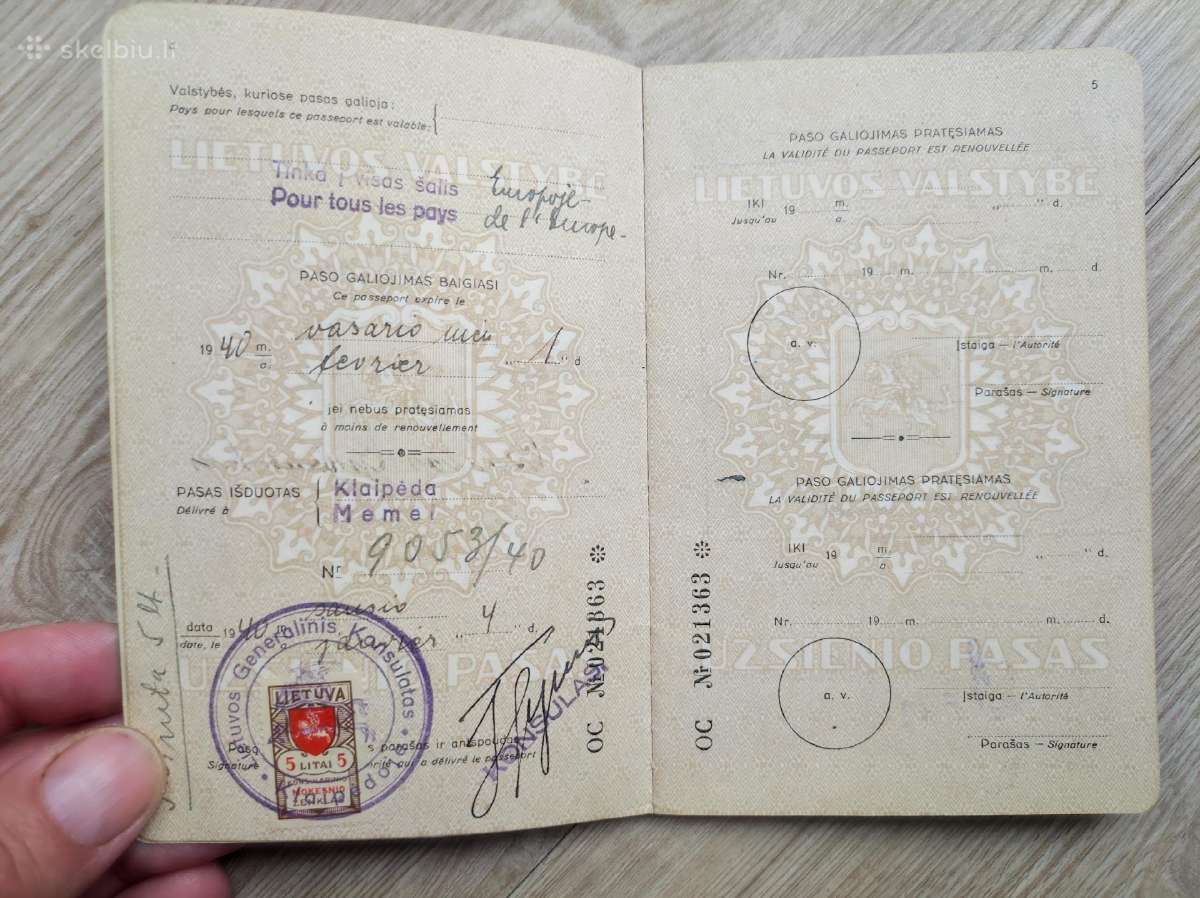 skelbiu.lt
Valstybės, kuriose pasas galioja:
Pays pour lesquels ce passeport est valable:
LIETUVOS VALSTYBĖ
Tinka į visas šalis Europoje
Pour tous les pays de l'Europe
PASO GALIOJIMAS BAIGIASI
Ce passeport expire le
1940 m. vasario mėn
a. fevrier „1" d
jei nebus pratęsiamas
à moins de renouvellement
PASAS IŠDUOTAS Klaipėda
Délivré à Memel
Nr 9053/40
data 1940 m. sausio
date, le janvier „4" d.
UŽSIENIO PASAS
Lietuvos Generalinis Konsulatas
LIETUVA
5 LITAI 5
KONSULARINIO
MOKESNIO
ŽENKLAS
parašas ir antspaudas
Signature
qui a délivré le passeport
KONSULAS
OC №021363
5
PASO GALIOJIMAS PRATĘSIAMAS
LA VALIDITÉ DU PASSEPORT EST RENOUVELLÉE
LIETUVOS VALSTYBĖ
IKI 19 m. „ " d.
Jusqu'au a.
Nr. 19 m. m. d.
a. v.
Įstaiga — l'Autorité
Parašas — Signature
PASO GALIOJIMAS PRATĘSIAMAS
LA VALIDITÉ DU PASSEPORT EST RENOUVELLÉE
IKI 19 m. „ " d.
Jusqu'au a
Nr. 19 m. m. d.
UŽSIENIO PASAS
a. v.
Įstaiga — l'Autorité
Parašas — Signature
OC №021363